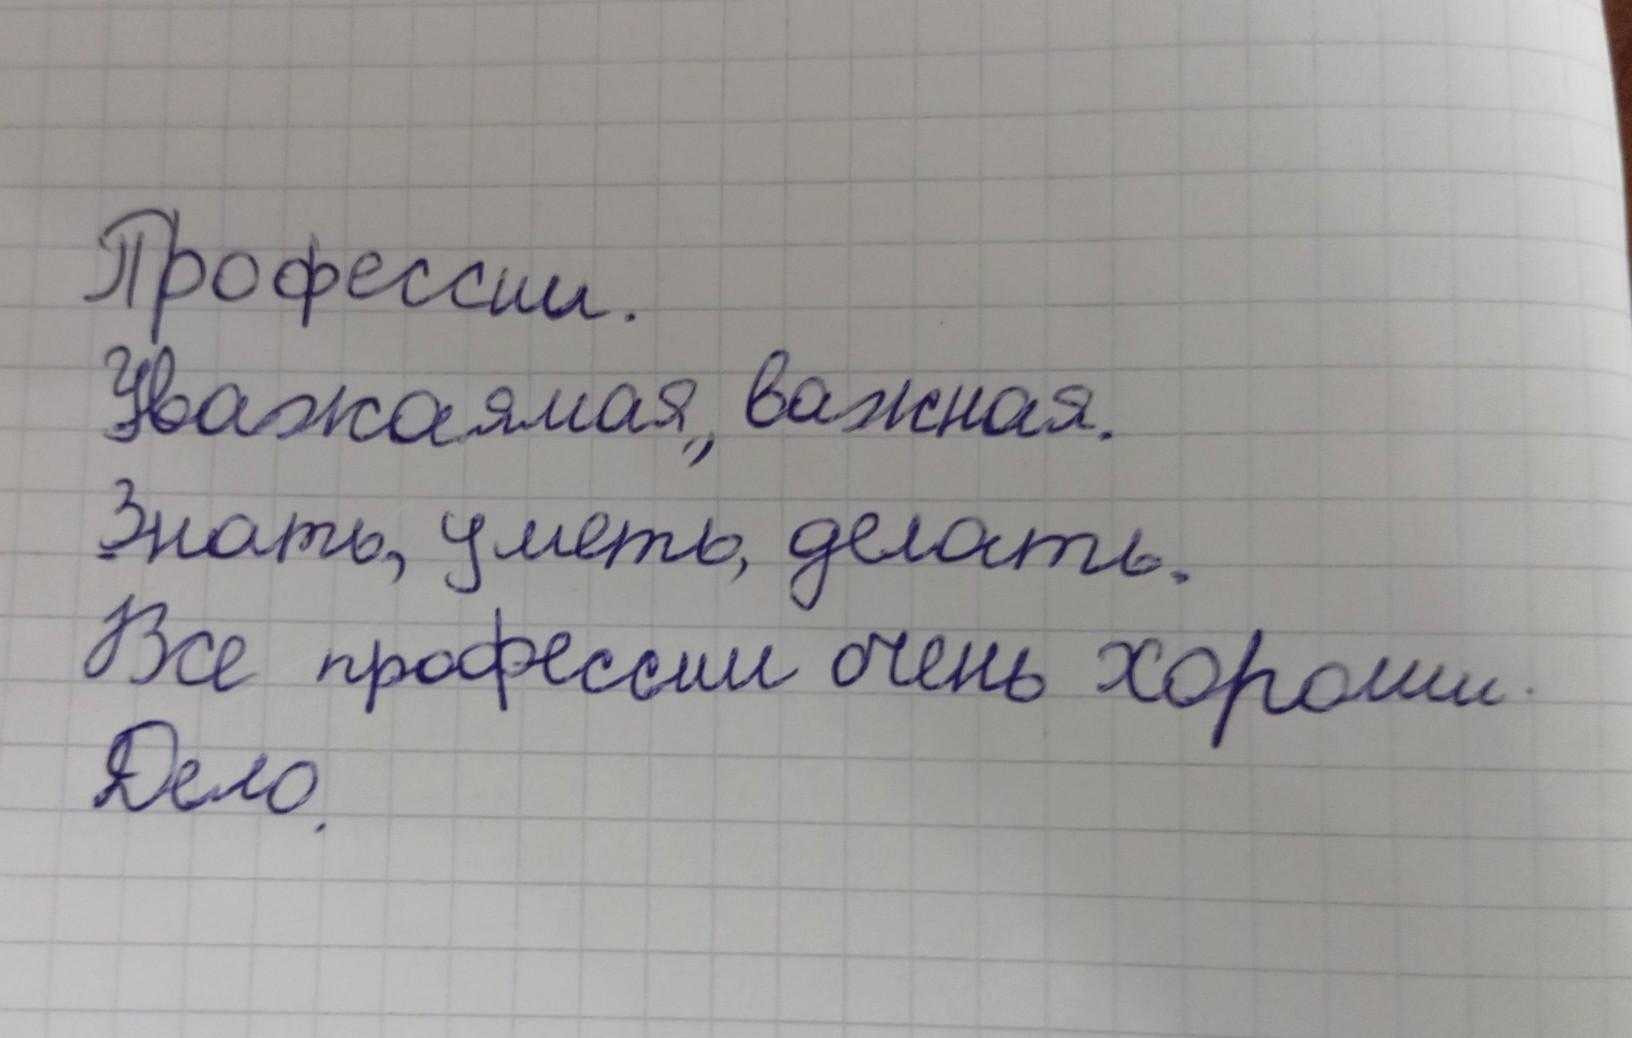 Профессии.
Уважаямая, важная.
Знать, уметь, делать.
Все профессии очень хороши.
Дело.